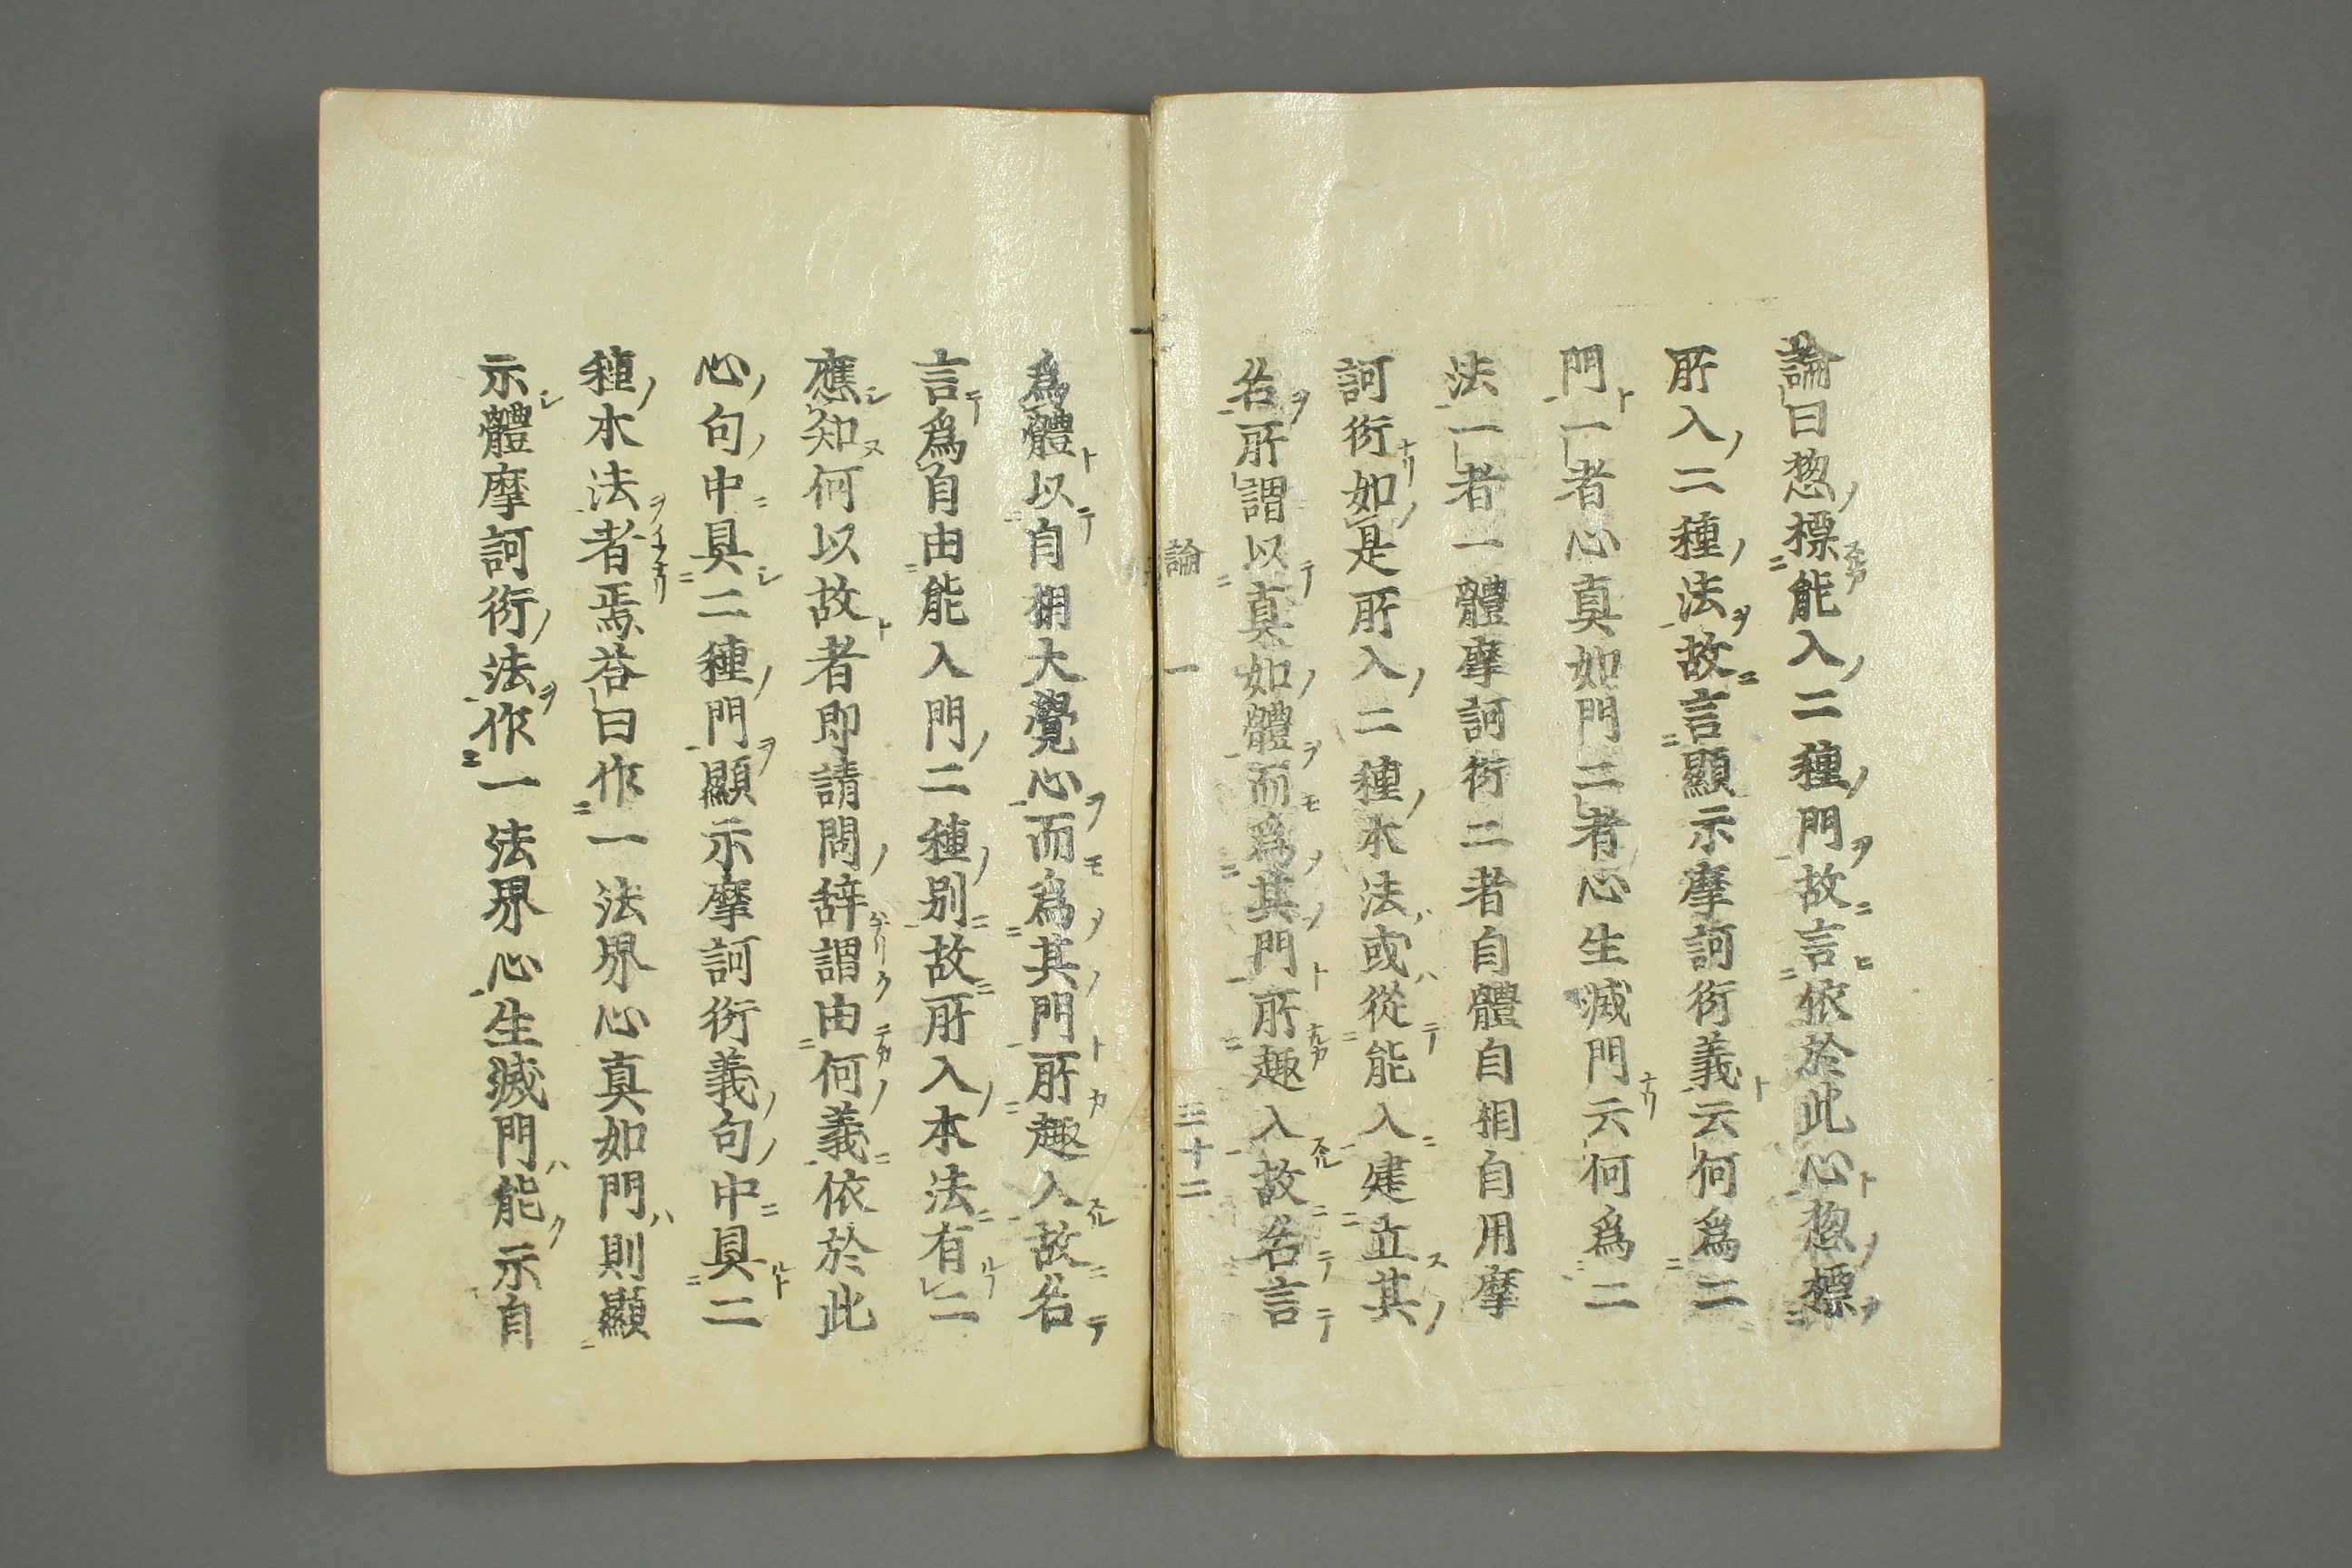 論曰惣標能入二種門故言依於此心惣標
所入二種法故言顯示摩訶衍義云何為二
門一者心真如門二者心生滅門云何為二
法一者一體摩訶衍二者自體自相自用摩
訶衍如是所入二種本法或從能入建立其
名所謂以真如體而為其門所趣入故名言
論 一 三十二
為體以自相大覺心而為其門所趣入故名
言為自由能入門二種別故所入本法有二
應知何以故者即請問辞謂由何義依於此
心句中具二種門顯示摩訶衍義句中具二
種本法者焉荅曰作一法界心真如門則顯
示體摩訶衍法作一法界心生滅門能示自